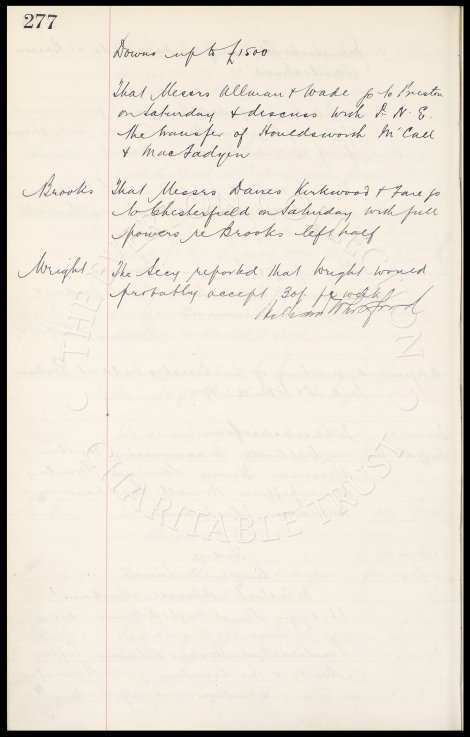 277
Downs up to £1500
That Messrs Allman & Wade go to Preston
on Saturday & discuss with P. N. E.
the transfer of Houldsworth McCall
& MacFadyen
Brooks That Messrs. Davies Kirkwood & Fare go
to Chesterfield on Saturday with full
powers re Brooks left half
Wright The Secy reported that Wright would
probably accept 30/- per week
CHARITABLE TRUST